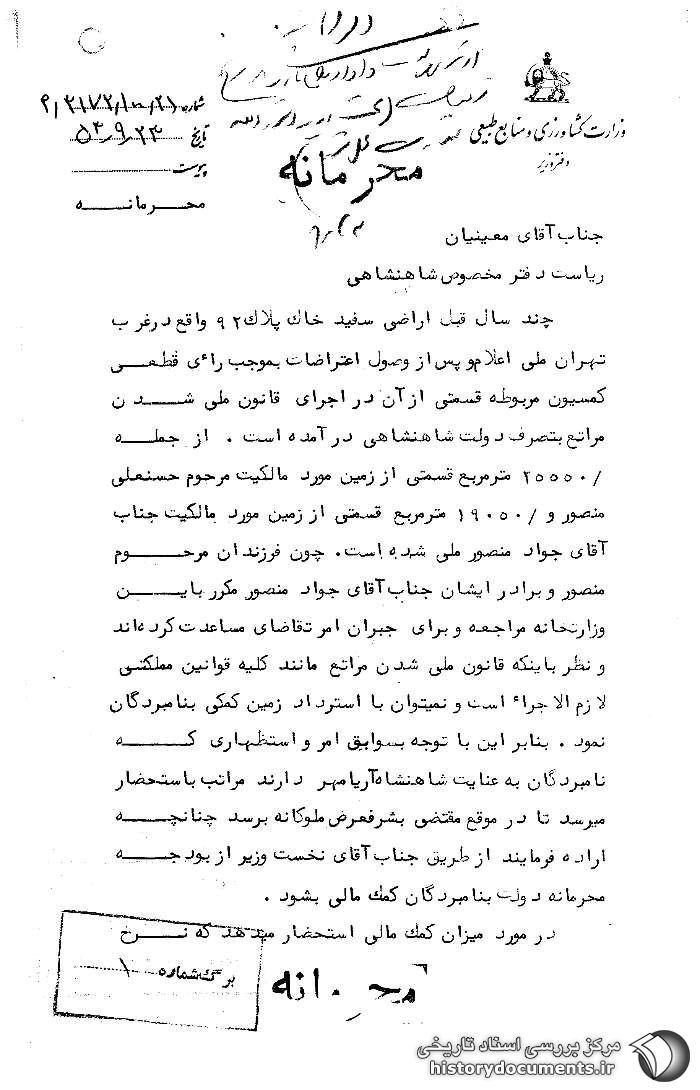 وزارت کشاورزی و منابع طبیعی
دفتر وزیر
شماره ۲۱/۱۰/۲۱۷۲/م
تاریخ ۵۳,۹,۲۳
پیوست
محرمانه
محرمانه
جناب آقای معینیان
ریاست دفتر مخصوص شاهنشاهی
چند سال قبل اراضی سفید خاك پلاك ۹۲ واقع درغرب
تهران ملی اعلام‌و پس از وصول اعتراضات بموجب راءی قطعی
کمسیون مربوطه قسمتی از آن در اجرای قانون ملی شدن
مراتع بتصرف دولت شاهنشاهی درآمده است . از جمله
۲۵۵۵۰/ مترمربع قسمتی از زمین مورد مالکیت مرحوم حسنعلی
منصور و /۱۹۰۵۰ مترمربع قسمتی از زمین مورد مالکیت جناب
آقای جواد منصور ملی شده است. چون فرزندان مرحوم
منصور و برادر ایشان جناب آقای جواد منصور مکرر باین
وزارتخانه مراجعه و برای جبران امر تقاضای مساعدت کرده‌اند
و نظر باینکه قانون ملی شدن مراتع مانند کلیه قوانین مملکتی
لازم الاجراء است و نمیتوان با استرداد زمین کمکی بنامبردگان
نمود . بنابر این با توجه بسوابق امر و استظهاری که
نامبردگان به عنایت شاهنشاه‌آریامهر دارند مراتب باستحضار
میرسد تا در موقع مقتضی بشرفعرض ملوکانه برسد چنانچه
اراده فرمایند از طریق جناب آقای نخست وزیر از بودجه
محرمانه دولت بنامبردگان کمك مالی بشود .
در مورد میزان کمك مالی استحضار میدهد که نرخ
برگ شماره ۱
محرمانه
مرکز بررسی اسناد تاریخی
historydocuments.ir